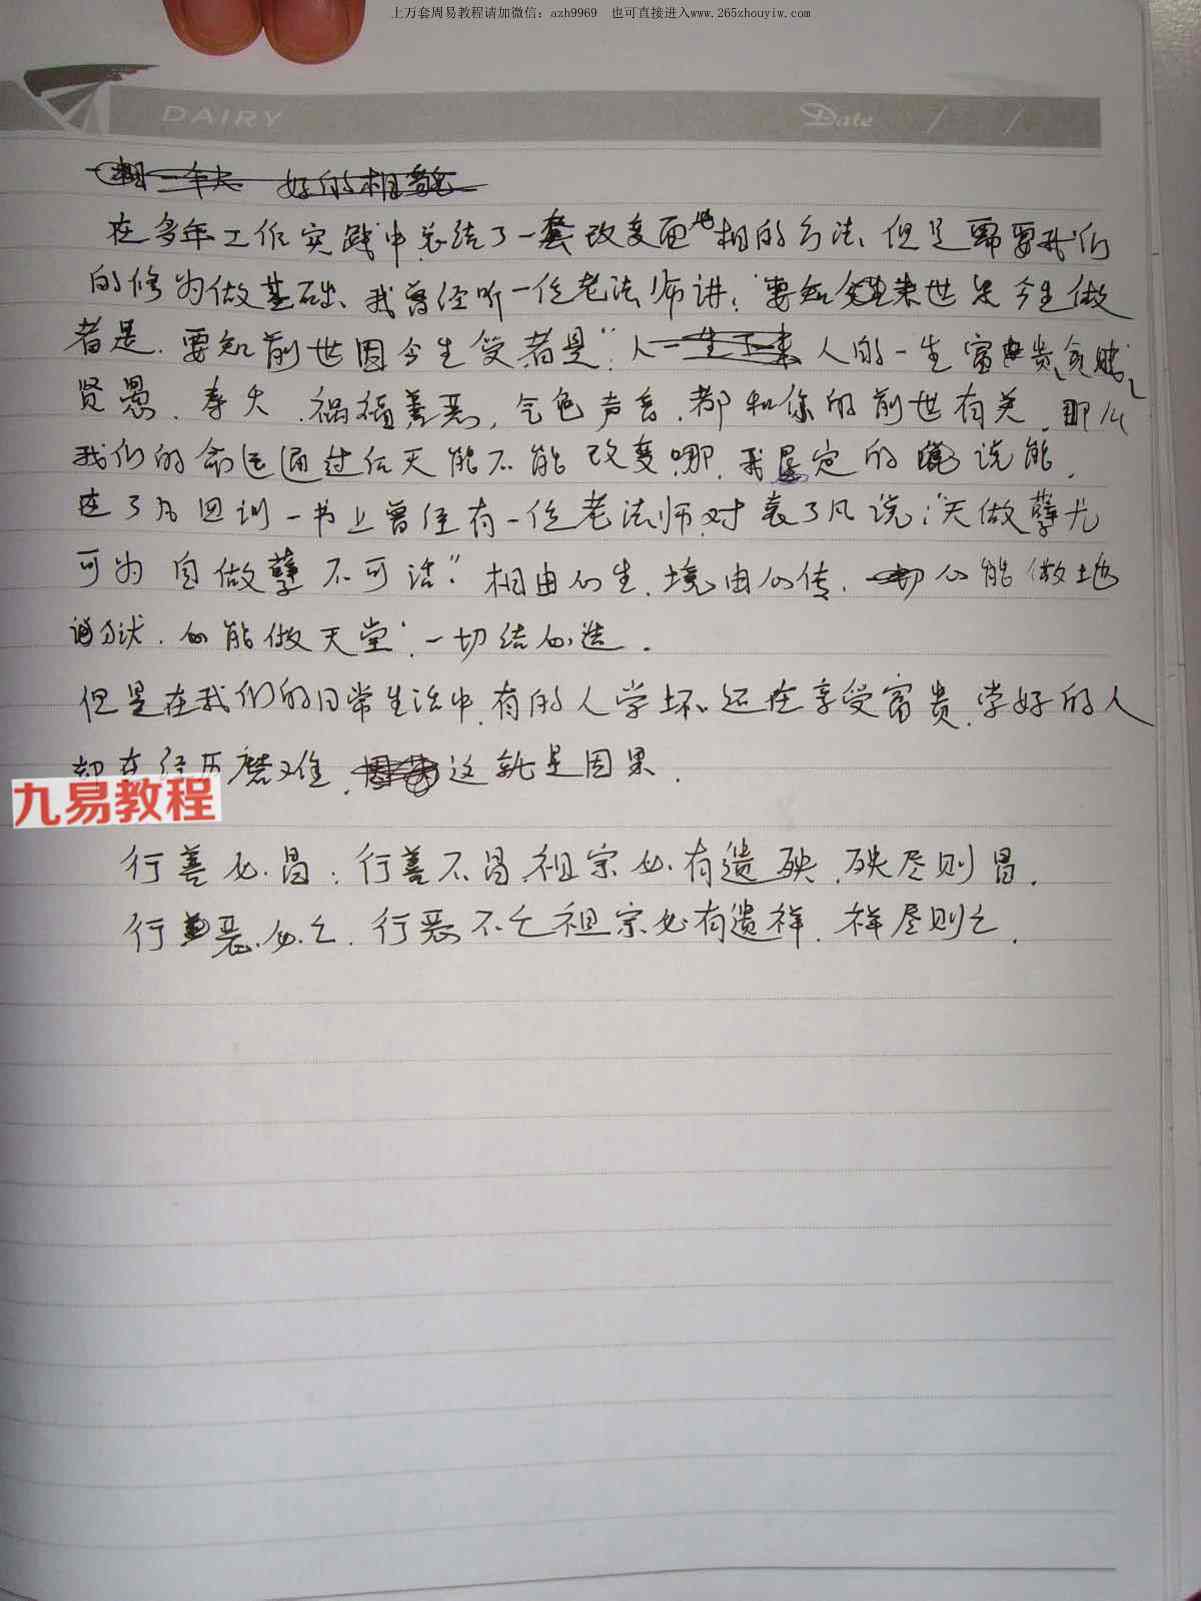 上万套周易教程请加微信：azh9969 也可直接进入www.265zhouyiw.com
DAIRY Date / /
好的相貌
在多年工作实践中总结了一套改变面相的方法、但是需要我们
的修为做基础、我曾经听一位老法师讲：要知来世果今生做
者是．要知前世因今生受者是”．人一生下来人的一生富贵、贫贱、
贤愚．寿夭．祸福善恶，气色声音．都和你的前世有关．那么
我们的命运通过后天能不能改变哪．我肯定的说能．
在了凡四训一书上曾经有一位老法师对袁了凡说：“天做孽尤
可为自做孽不可活”．相由心生．境由心传．心能做地
狱．心能做天堂．一切结心造．
但是在我们的日常生活中．有的人学坏还在享受富贵．学好的人
却在经历磨难．这就是因果．
九易教程
行善必昌：行善不昌．祖宗必有遗殃．殃尽则昌．
行恶必亡．行恶不亡祖宗必有遗祥．祥尽则亡．